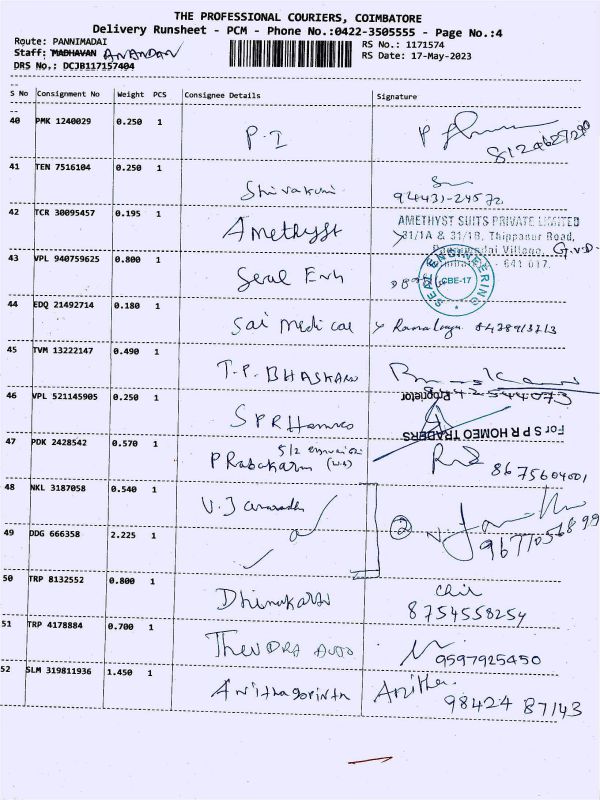 THE PROFESSIONAL COURIERS, COIMBATORE
Delivery Runsheet - PCM - Phone No.:0422-3505555 - Page No.:4
Route: PANNIMADAI
RS No.: 1171574
Staff: MADHAVAN ANANDAN
RS Date: 17-May-2023
DRS No.: DCJB117157404
S No Consignment No Weight PCS Consignee Details Signature
40 PMK 1240029 0.250 1
P. I
P
8124627290
41 TEN 7516104 0.250 1
Shivakumi
94431-24572
42 TCR 30095457 0.195 1
Amethyst
AMETHYST SUITS PRIVATE LIMITED
31/1A & 31/1B, Thippanur Road,
Pannimadai Village, G.V.D.
641 017.
43 VPL 940759625 0.800 1
Seral Enh
SEAL ENGINEERING
CBE-17
44 EDQ 21492714 0.180 1
Sai medical
45 TVM 13222147 0.490 1
T.P. BHASKARN
Proprietor
46 VPL 521145905 0.250 1
S P R Homeo
For S P R HOMEO TRADERS
47 PDK 2428542 0.570 1
5/2
PRabakaran
8675604001
48 NKL 3187058 0.540 1
V.J
2
9677056899
49 DDG 666358 2.225 1
50 TRP 8132552 0.800 1
Dhinakaran
8754558254
51 TRP 4178884 0.700 1
TheVDRA AUTO
9597925450
52 SLM 319811936 1.450 1
Anithagovinth
Anitha
98424 87143